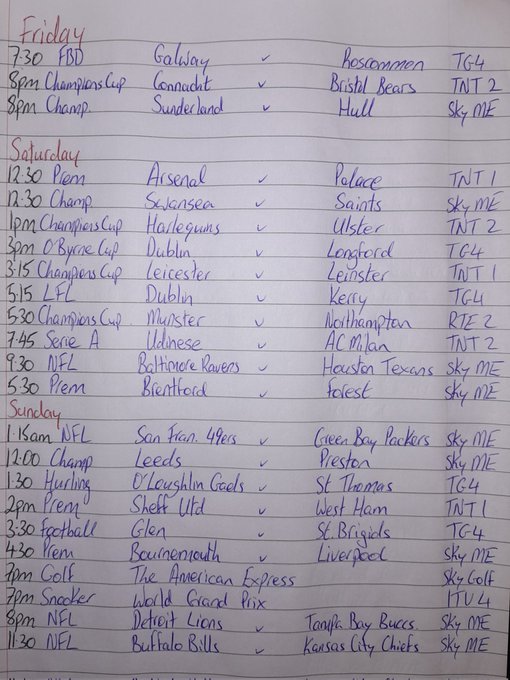 Friday
7:30 FBD Galway v Roscommon TG4
8pm Champions Cup Connacht v Bristol Bears TNT 2
8pm Champ. Sunderland v Hull Sky ME
Saturday
12:30 Prem Arsenal v Palace TNT 1
12:30 Champ Swansea v Saints Sky ME
1pm Champions Cup Harlequins v Ulster TNT 2
3pm O'Byrne Cup Dublin v Longford TG4
3:15 Champions Cup Leicester v Leinster TNT 1
5:15 LFL Dublin v Kerry TG4
5:30 Champions Cup Munster v Northampton RTE 2
7:45 Serie A Udinese v AC Milan TNT 2
9:30 NFL Baltimore Ravens v Houston Texans Sky ME
5:30 Prem Brentford v Forest Sky ME
Sunday
1:15am NFL San Fran. 49ers v Green Bay Packers Sky ME
12:00 Champ Leeds v Preston Sky ME
1:30 Hurling O'Loughlin Gaels v St Thomas TG4
2pm Prem Sheff Utd v West Ham TNT 1
3:30 Football Glen v St. Brigids TG4
4:30 Prem Bournemouth v Liverpool Sky ME
7pm Golf The American Express Sky Golf
7pm Snooker World Grand Prix ITV4
8pm NFL Detroit Lions v Tampa Bay Buccs Sky ME
11:30 NFL Buffalo Bills v Kansas City Chiefs Sky ME